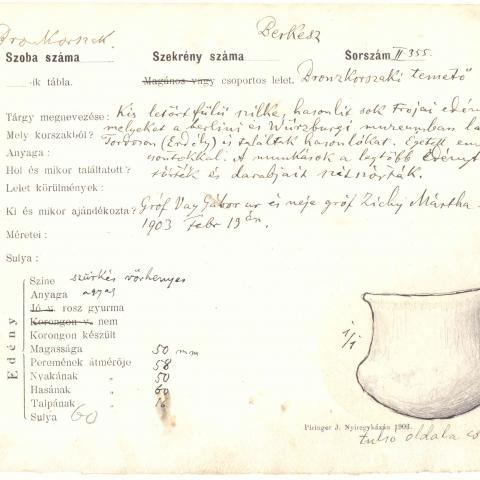 Bronzkorszak.
Berkesz
Szoba száma Szekrény száma Sorszám II 355.
-ik tábla. Magános vagy csoportos lelet. Bronzkorszaki temető
Tárgy megnevezése: Kis letört fülű szilke, hasonlit sok trojai
Mely korszakból? melyeket a berlini és Würzburgi muzeumban
Anyaga: Tordoson (Erdély) is találtak hasonlókat. Égetett
Hol és mikor találtatott? csontokkal. A munkások a legtöbb edényt
Lelet körülmények: törték és darabjait szétszórták.
Ki és mikor ajándékozta? Gróf Vay Gábor ur és neje gróf Zichy Mártha
Méretei: 1903 Febr 19 én.
Sulya:
Edény
Szine szürkés vörhenyes
Anyaga agyag
Jó v. rosz gyurma
Korongon v. nem
Korongon készült
Magassága 50 mm
Peremének átmérője 58
Nyakának " 50
Hasának " 60
Talpának " 16
Sulya 60
1/1
Piringer J. Nyíregyházán 1903.
tulsó oldala